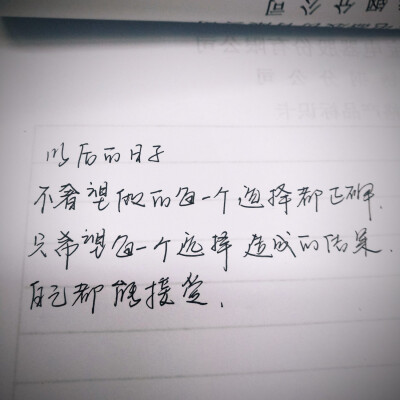 钢分公司
以后的日子
不奢望做的每一个选择都正确.
只希望每一个选择 造成的结果.
自己都能接受.